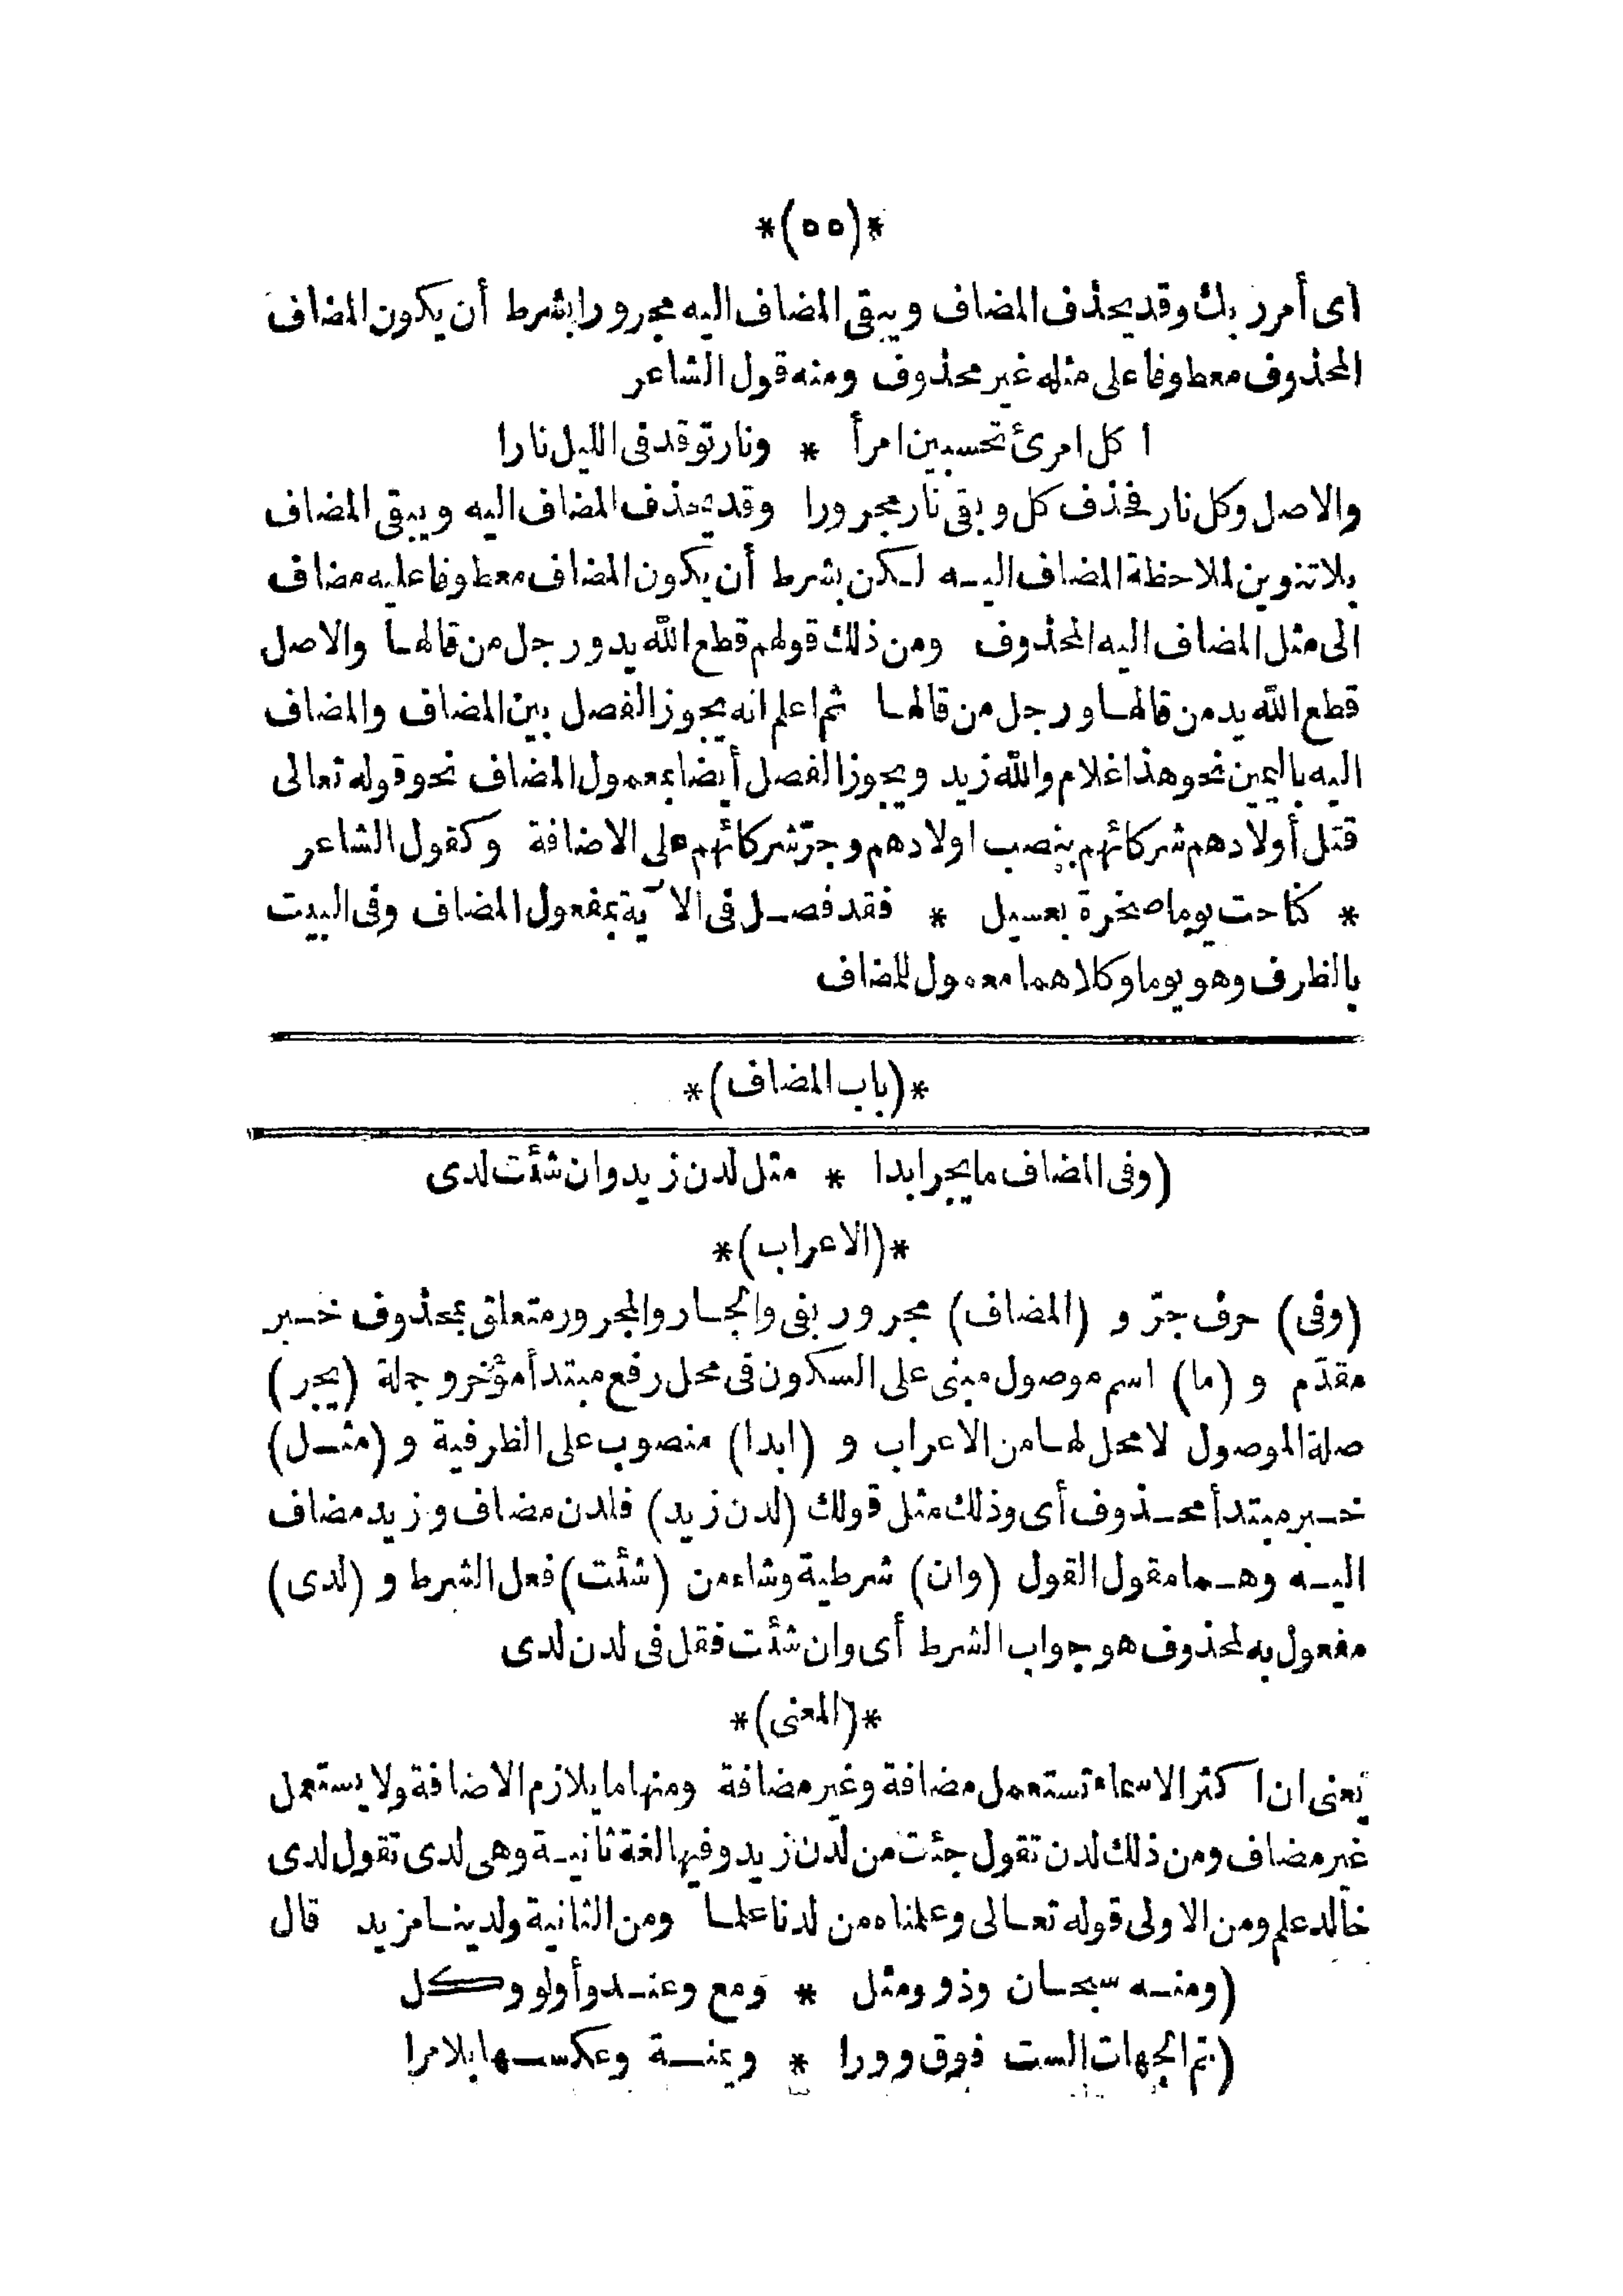 *(٥٥)*
أى أمرر بك وقد يحذف المضاف ويبقى المضاف اليه مجرورا بشرط أن يكون المضاف
المحذوف معطوفا على مثله غير محذوف ومنه قول الشاعر
ا كل امرئ تحسبين امرأ * ونار توقد فى الليل نارا
والاصل وكل نار فحذف كل وبقى نار مجرورا وقد يحذف المضاف اليه ويبقى المضاف
بلا تنوين لملاحظة المضاف اليه لكن بشرط أن يكون المضاف معطوفا عليه مضاف
الى مثل المضاف اليه المحذوف ومن ذلك قولهم قطع الله يد ورجل من قالها والاصل
قطع الله يد من قالها ورجل من قالها ثم اعلم انه يجوز الفصل بين المضاف والمضاف
اليه باليمين نحو هذا غلام والله زيد ويجوز الفصل أيضا بمعمول المضاف نحو قوله تعالى
قتل أولادهم شركائهم بنصب اولادهم وجرّ شركائهم على الاضافة وكقول الشاعر
* كناحت يوما صخرة بعسيل * فقد فصل فى الآية بمفعول المضاف وفى البيت
بالظرف وهو يوما وكلاهما معمول للمضاف
*(باب المضاف)*
(وفى المضاف ما يجر ابدا * مثل لدن زيد وان شئت لدى
*(الاعراب)*
(وفى) حرف جرّ و (المضاف) مجرور بفى والجار والمجرور متعلق بمحذوف خبر
مقدّم و (ما) اسم موصول مبنى على السكون فى محل رفع مبتدأ مؤخر وجملة (يجر)
صلة الموصول لا محل لها من الاعراب و (ابدا) منصوب على الظرفية و (مثل)
خبر مبتدأ محذوف أى وذلك مثل قولك (لدن زيد) فلدن مضاف وزيد مضاف
اليه وهما مقول القول (وان) شرطية وشاء من (شئت) فعل الشرط و (لدى)
مفعول به لمحذوف هو جواب الشرط أى وان شئت فقل فى لدن لدى
*(المعنى)*
يعنى ان اكثر الاسماء تستعمل مضافة وغير مضافة ومنها ما يلازم الاضافة ولا يستعمل
غير مضاف ومن ذلك لدن تقول جئت من لدن زيد وفيها لغة ثانية وهى لدى تقول لدى
خالد علم ومن الاولى قوله تعالى وعلمناه من لدنا علما ومن الثانية ولدينا مزيد قال
(ومنه سبحان وذو ومثل * ومع وعند وأولو وكل
(ثم الجهات الست فوق وورا * ويمنة وعكسها بلا مرا